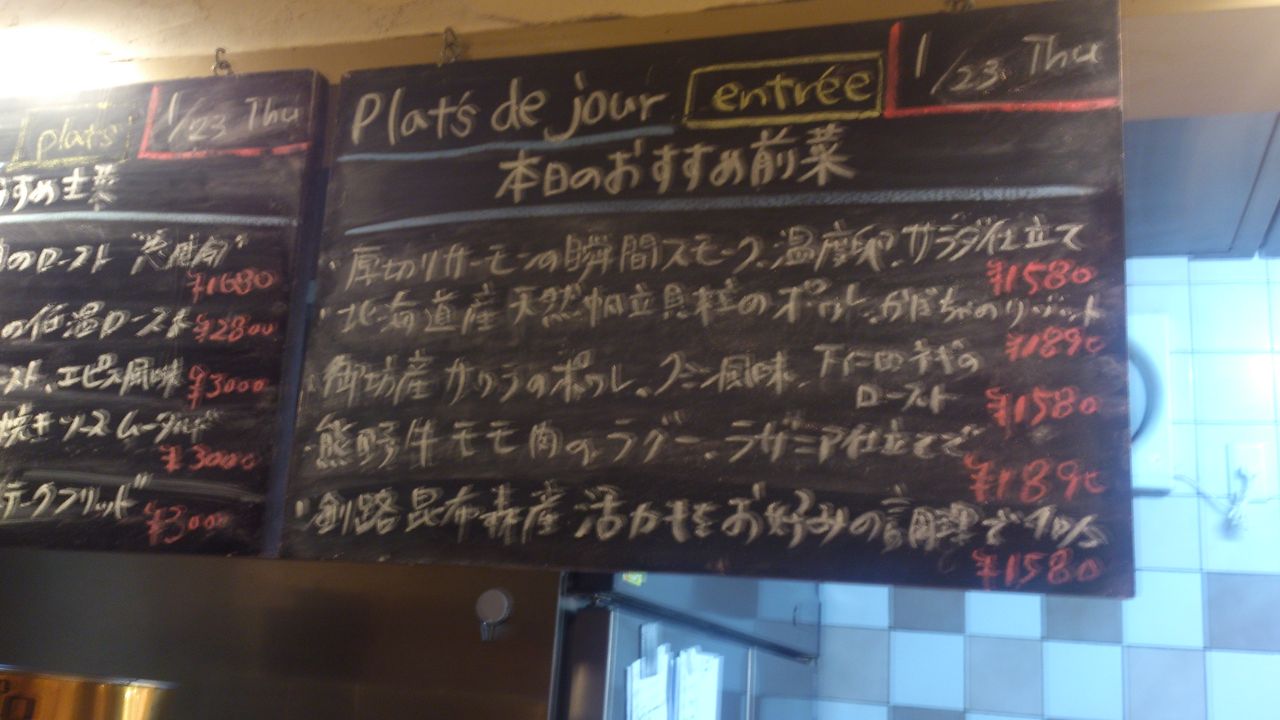 plats
1/23 Thu
すすめ主菜
のロースト
¥1680
の低温ロースト ¥2800
スト、エピス風味 ¥3000
焼き ソース
¥3000
テークフリット"
¥3000
Plat's de jour entrée 1/23 Thu
本日のおすすめ前菜
・厚切りサーモンの瞬間スモーク、温度卵、サラダ仕立て
¥1580
・北海道産 天然帆立貝柱のポワレ、かぼちゃのリゾット
¥1890
・御坊産 サワラのポワレ、クミン風味、下仁田ネギの
ロースト ¥1580
・熊野牛モモ肉のラグー、ラザニア仕立てで
¥1890
・釧路昆布森産 活カキをお好みの調理で
¥1580